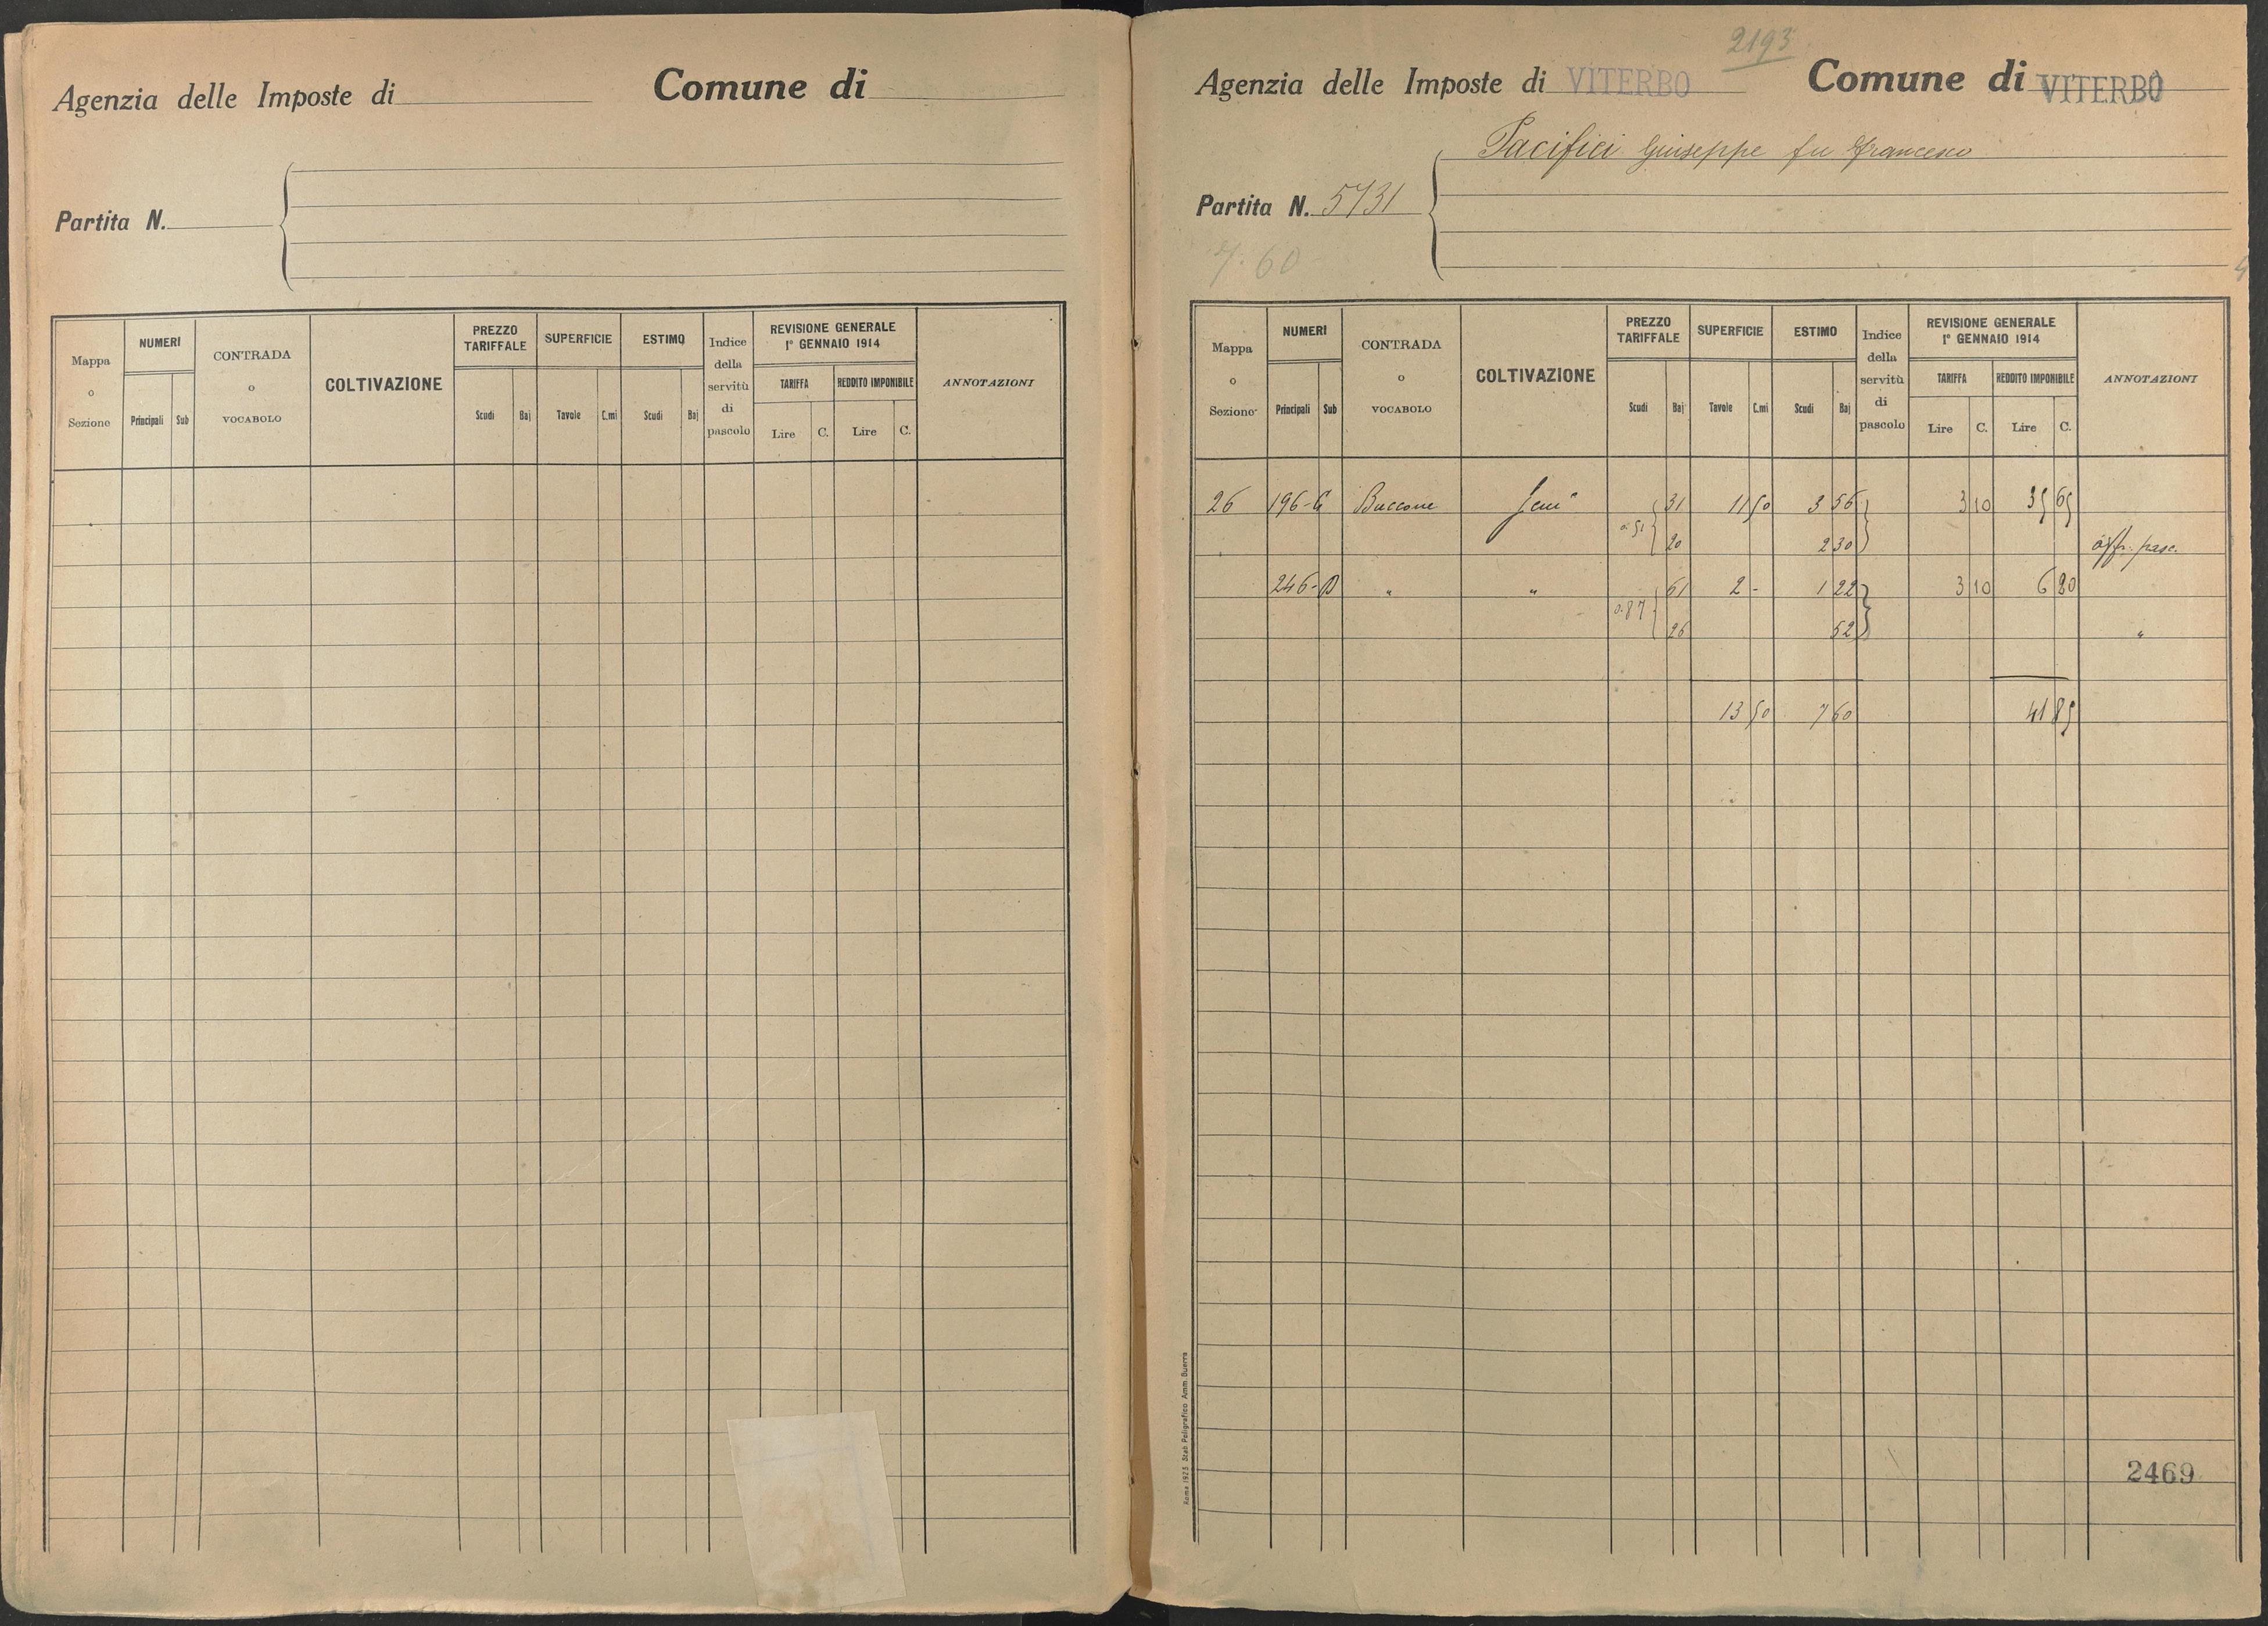 Agenzia delle Imposte di
Comune di
Partita N.
Mappa o Sezione
NUMERI
Principali Sub
CONTRADA o VOCABOLO
COLTIVAZIONE
PREZZO TARIFFALE
Scudi Baj
SUPERFICIE
Tavole C.mi
ESTIMO
Scudi Baj
Indice della servitù di pascolo
REVISIONE GENERALE
1° GENNAIO 1914
TARIFFA
Lire C.
REDDITO IMPONIBILE
Lire C.
ANNOTAZIONI
2193
Agenzia delle Imposte di VITERBO
Comune di VITERBO
Pacifici Giuseppe fu Francesco
Partita N. 5731
7.60
Mappa o Sezione
NUMERI
Principali Sub
CONTRADA o VOCABOLO
COLTIVAZIONE
PREZZO TARIFFALE
Scudi Baj
SUPERFICIE
Tavole C.mi
ESTIMO
Scudi Baj
Indice della servitù di pascolo
REVISIONE GENERALE
1° GENNAIO 1914
TARIFFA
Lire C.
REDDITO IMPONIBILE
Lire C.
ANNOTAZIONI
26 196-G Buccone Semº 31 11 50 3 56 3 10 35 65
0.51 20 2 30 affr. pasc.
246-D " " 61 2 - 1 22 3 10 6 20
0.87 26 52 "
13 50 7 60 41 85
2469
Roma 1923. Stab. Poligrafico Amm. Guerra